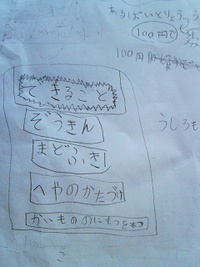 あるばいとりょうきん
100円で
100円
できること
ぞうきん
まどふき
へやのかたづけ
かいもののにもつをもつ
うしろも
こ